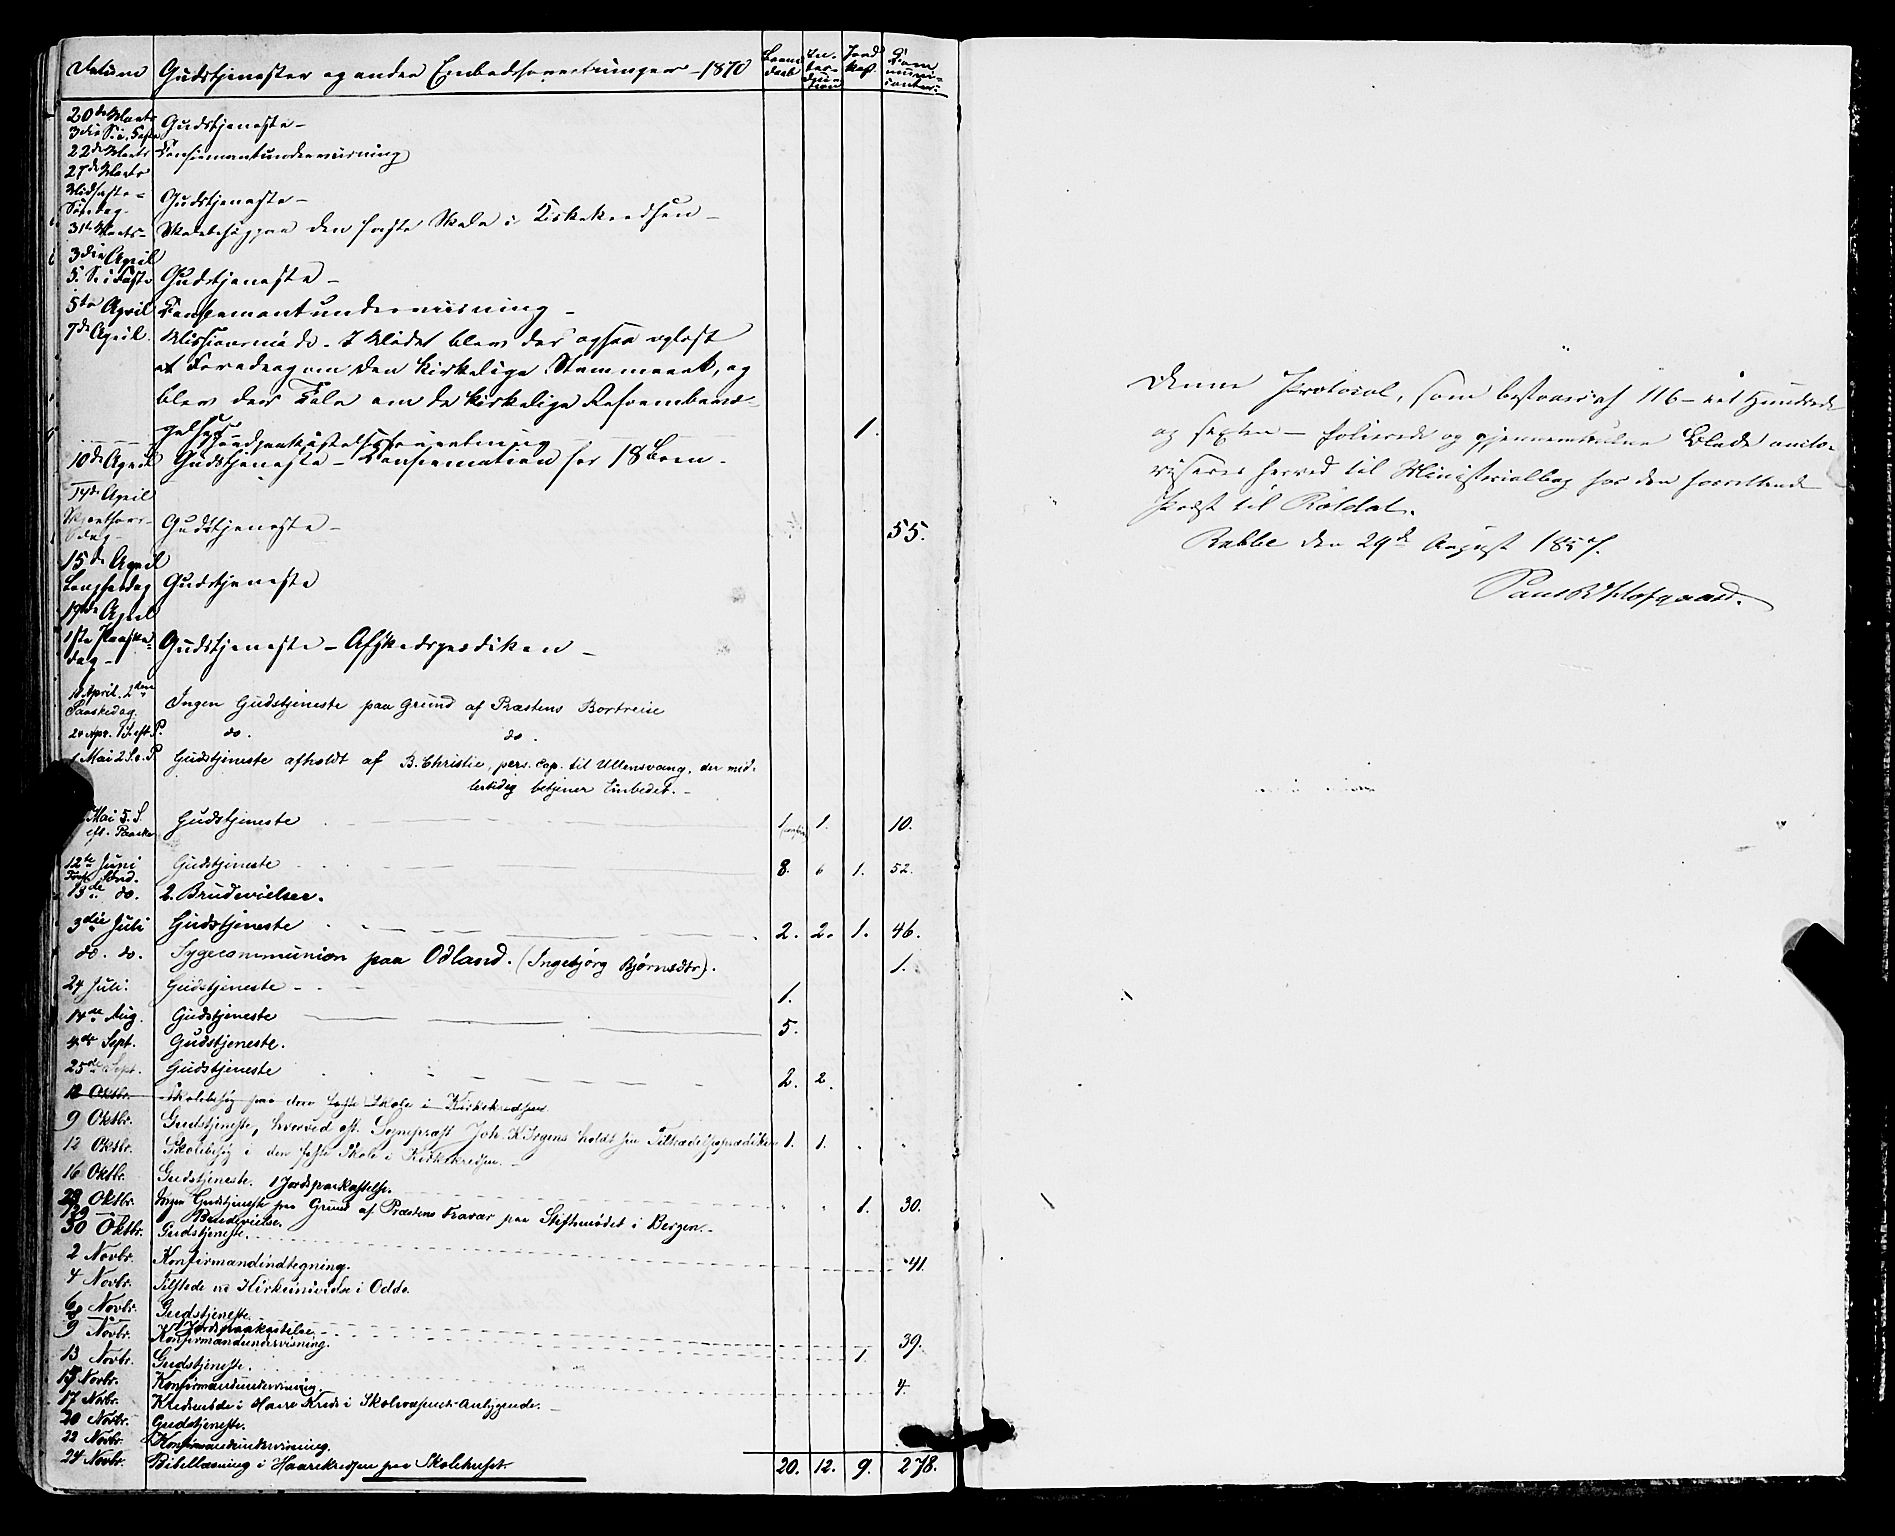 Datum Gudstjenester og andre Embedsforretninger - 1870 Barnedaab Introduktion Jordkast. Communicanter.
20de Marts
3die S. i Faste Gudstjeneste -
22de Marts Konfirmantundervisning
27de Marts
Midfaste-
Søndag. Gudstjeneste -
31te Marts - Skolebesøg paa den faste Skole i Kirkekredsen -
3die April
5. S. i Faste Gudstjeneste -
5te April Konfirmantundervisning -
7de April. Missionsmøde. I Mødet blev der ogsaa oplæst
et Foredrag om den kirkelige Stemmeret, og
blev der Tale om de kirkelige Reformbevæ-
gelser -
Jordpaakastelsesforretning 1.
10de April Gudstjeneste - Konfirmation for 18 Børn -
14de April
Skjærthors-
dag - Gudstjeneste - 55.
15de April
Langfredag Gudstjeneste
17de April
1ste Paaske-
dag - Gudstjeneste - Afskedsprædiken -
18 April. 2den
Paaskedag Ingen Gudstjeneste paa Grund af Præstens Bortreise
24 Apr. 1 S. eft. P. do. do.
1 Mai 2 S. e. P. Gudstjeneste afholdt af B. Christie, pers. Cap. til Ullensvang, der mid-
lertidig betjener Embedet. -
Mai 5. S.
eft. Paaske Gudstjeneste 1 1. 10.
12te Juni Gudstjeneste 8. 6 1. 52.
13de do. 2 Brudevielser.
3die Juli Gudstjeneste 2. 2. 1. 46.
do. do. Sygecommunion paa Odland. (Ingebjørg Bjørnsdtr). 1.
24 Juli. Gudstjeneste - 1.
14de Aug. Gudstjeneste 5.
4de Sept. Gudstjeneste.
25de Sept. Gudstjeneste 2. 2.
12 Oktbr. Skolebesøg paa den faste Skole i Kirkekredsen
9 Oktbr. Gudstjeneste, hvorved Sognepræst Joh. K. Irgens holdt sin Tiltrædelsesprædiken 1. 1.
12 Oktbr. Skolebesøg i den faste Skole i Kirkekredsen. -
16 Oktbr. Gudstjeneste. 1 Jordpaakastelse.
23 Oktbr. Ingen Gudstjeneste paa Grund af Præstens Fravær paa Stiftsmødet i Bergen. - 1. 30.
29 Brudevielse.
30 Oktbr. Gudstjeneste.
2 Novbr. Konfirmandindtegning. 41.
4 Novbr. Tilstede ved Kirkeindvielse i Odde.
6 Novbr. Gudstjeneste.
1 Jordpaakastelse.
9 Novbr. Konfirmandundervisning. 39.
13 Novbr. Gudstjeneste. 1.
15 Novbr. Konfirmandundervisning. 4.
17 Novbr. Kredsmøde i Haare Kreds i Skolevæsenets Anliggende. -
20 Novbr. Gudstjeneste.
22 Novbr. Konfirmandundervisning.
24 Novbr. Bibellæsning i Haarekredsen paa Skolehuset. 20. 12. 9. 278.
Denne Protocol, som bestaaer af 116 - eet Hundrede
og sexten - folierede og gjennemdragne Blade autho-
riseres herved til Ministerialbog for den forrettende
Præst til Røldal.
Rabbe den 29de August 1857.